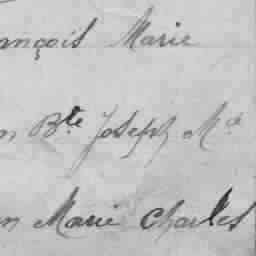 ançois Marie
n Bte Joseph Mie
n Marie Charles